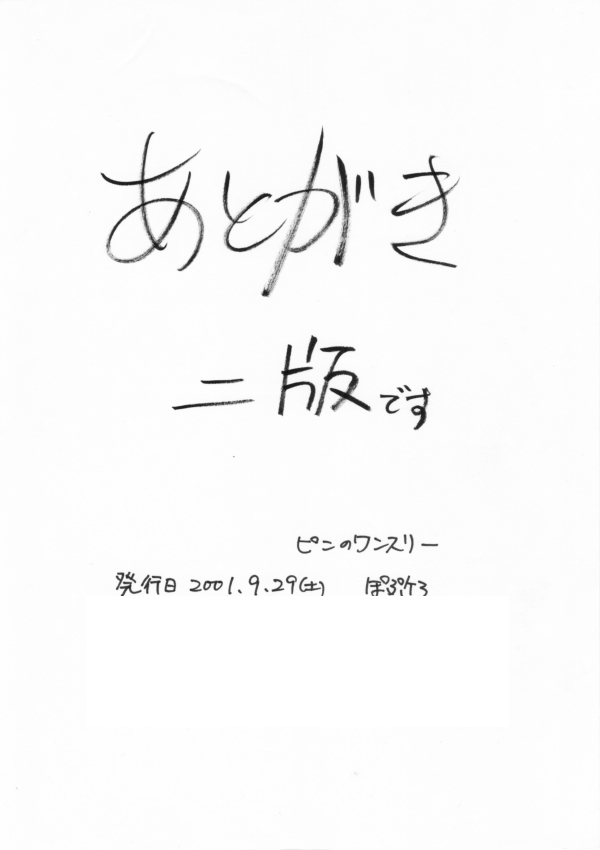 あとがき
二版です
ピンのワンスリー
発行日 2001.9.29(土) ぽぷける